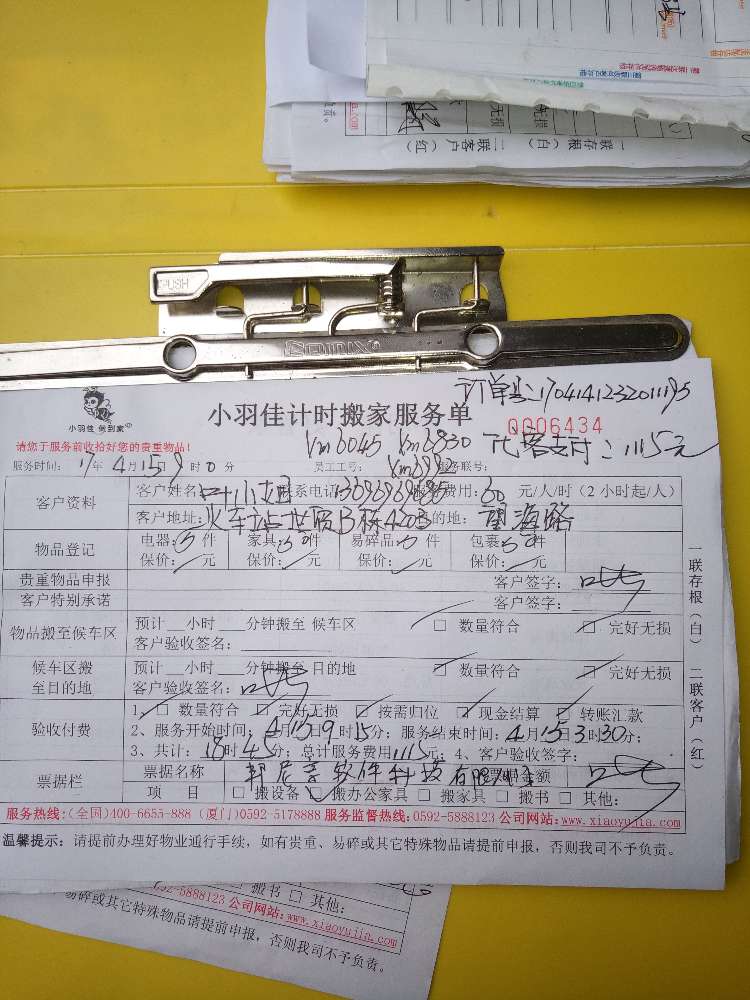 一联存根（白） 二联客户（红）
PUSH
订单号:170414123201195
小羽佳 做到家
小羽佳计时搬家服务单
QQ06434
请您于服务前收拾好您的贵重物品!
Xm6045 Xm6830 代客支付:1115元
服务时间: 17年4月15日9时0分 员工工号: 服务联号:
客户资料
客户姓名: 叶小姐 联系电话 服务费用: 60 元/人/时（2小时起/人）
客户地址: 火车站世贸B栋4203 目的地: 望海路
物品登记
电器: 件 家具: 件 易碎品: 件 包裹: 件
保价: 元 保价: 元 保价: 元 保价: 元
贵重物品申报 客户签字:
客户特别承诺 客户签字:
物品搬至候车区
预计 小时 分钟搬至 候车区 □ 数量符合 □ 完好无损
客户验收签名:
候车区搬至目的地
预计 小时 分钟搬至 目的地 □ 数量符合 □ 完好无损
客户验收签名:
验收付费
1、□ 数量符合 □ 完好无损 □ 按需归位 □ 现金结算 □ 转账汇款
2、服务开始时间: 4月15日9时15分; 服务结束时间: 4月15日3时30分;
3、共计: 18时45分; 总计服务费用1115元; 4、客户验收签字:
票据栏
票据名称 软件科技有限公司 票据金额
项 目 □ 搬设备 □ 搬办公家具 □ 搬家具 □ 搬书 □ 其他:
一联存根（白） 二联客户（红）
服务热线:(全国)400-6655-888 (厦门)0592-5178888 服务监督热线:0592-5888123 公司网站:www.xiaoyujia.com
温馨提示: 请提前办理好物业通行手续, 如有贵重、易碎或其它特殊物品请提前申报, 否则我司不予负责。
□ 搬书 □ 其他:
0592-5888123 公司网站:www.xiaoyujia.com
易碎或其它特殊物品请提前申报, 否则我司不予负责。